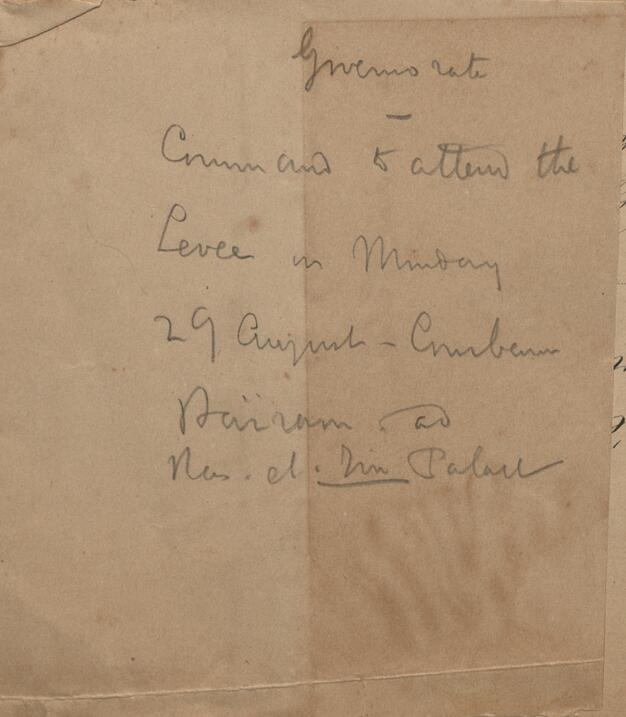 Governorate
-
Command to attend the
Levee on Monday
29 August - Courban
Baïram. at
Ras. el. Tin Palace